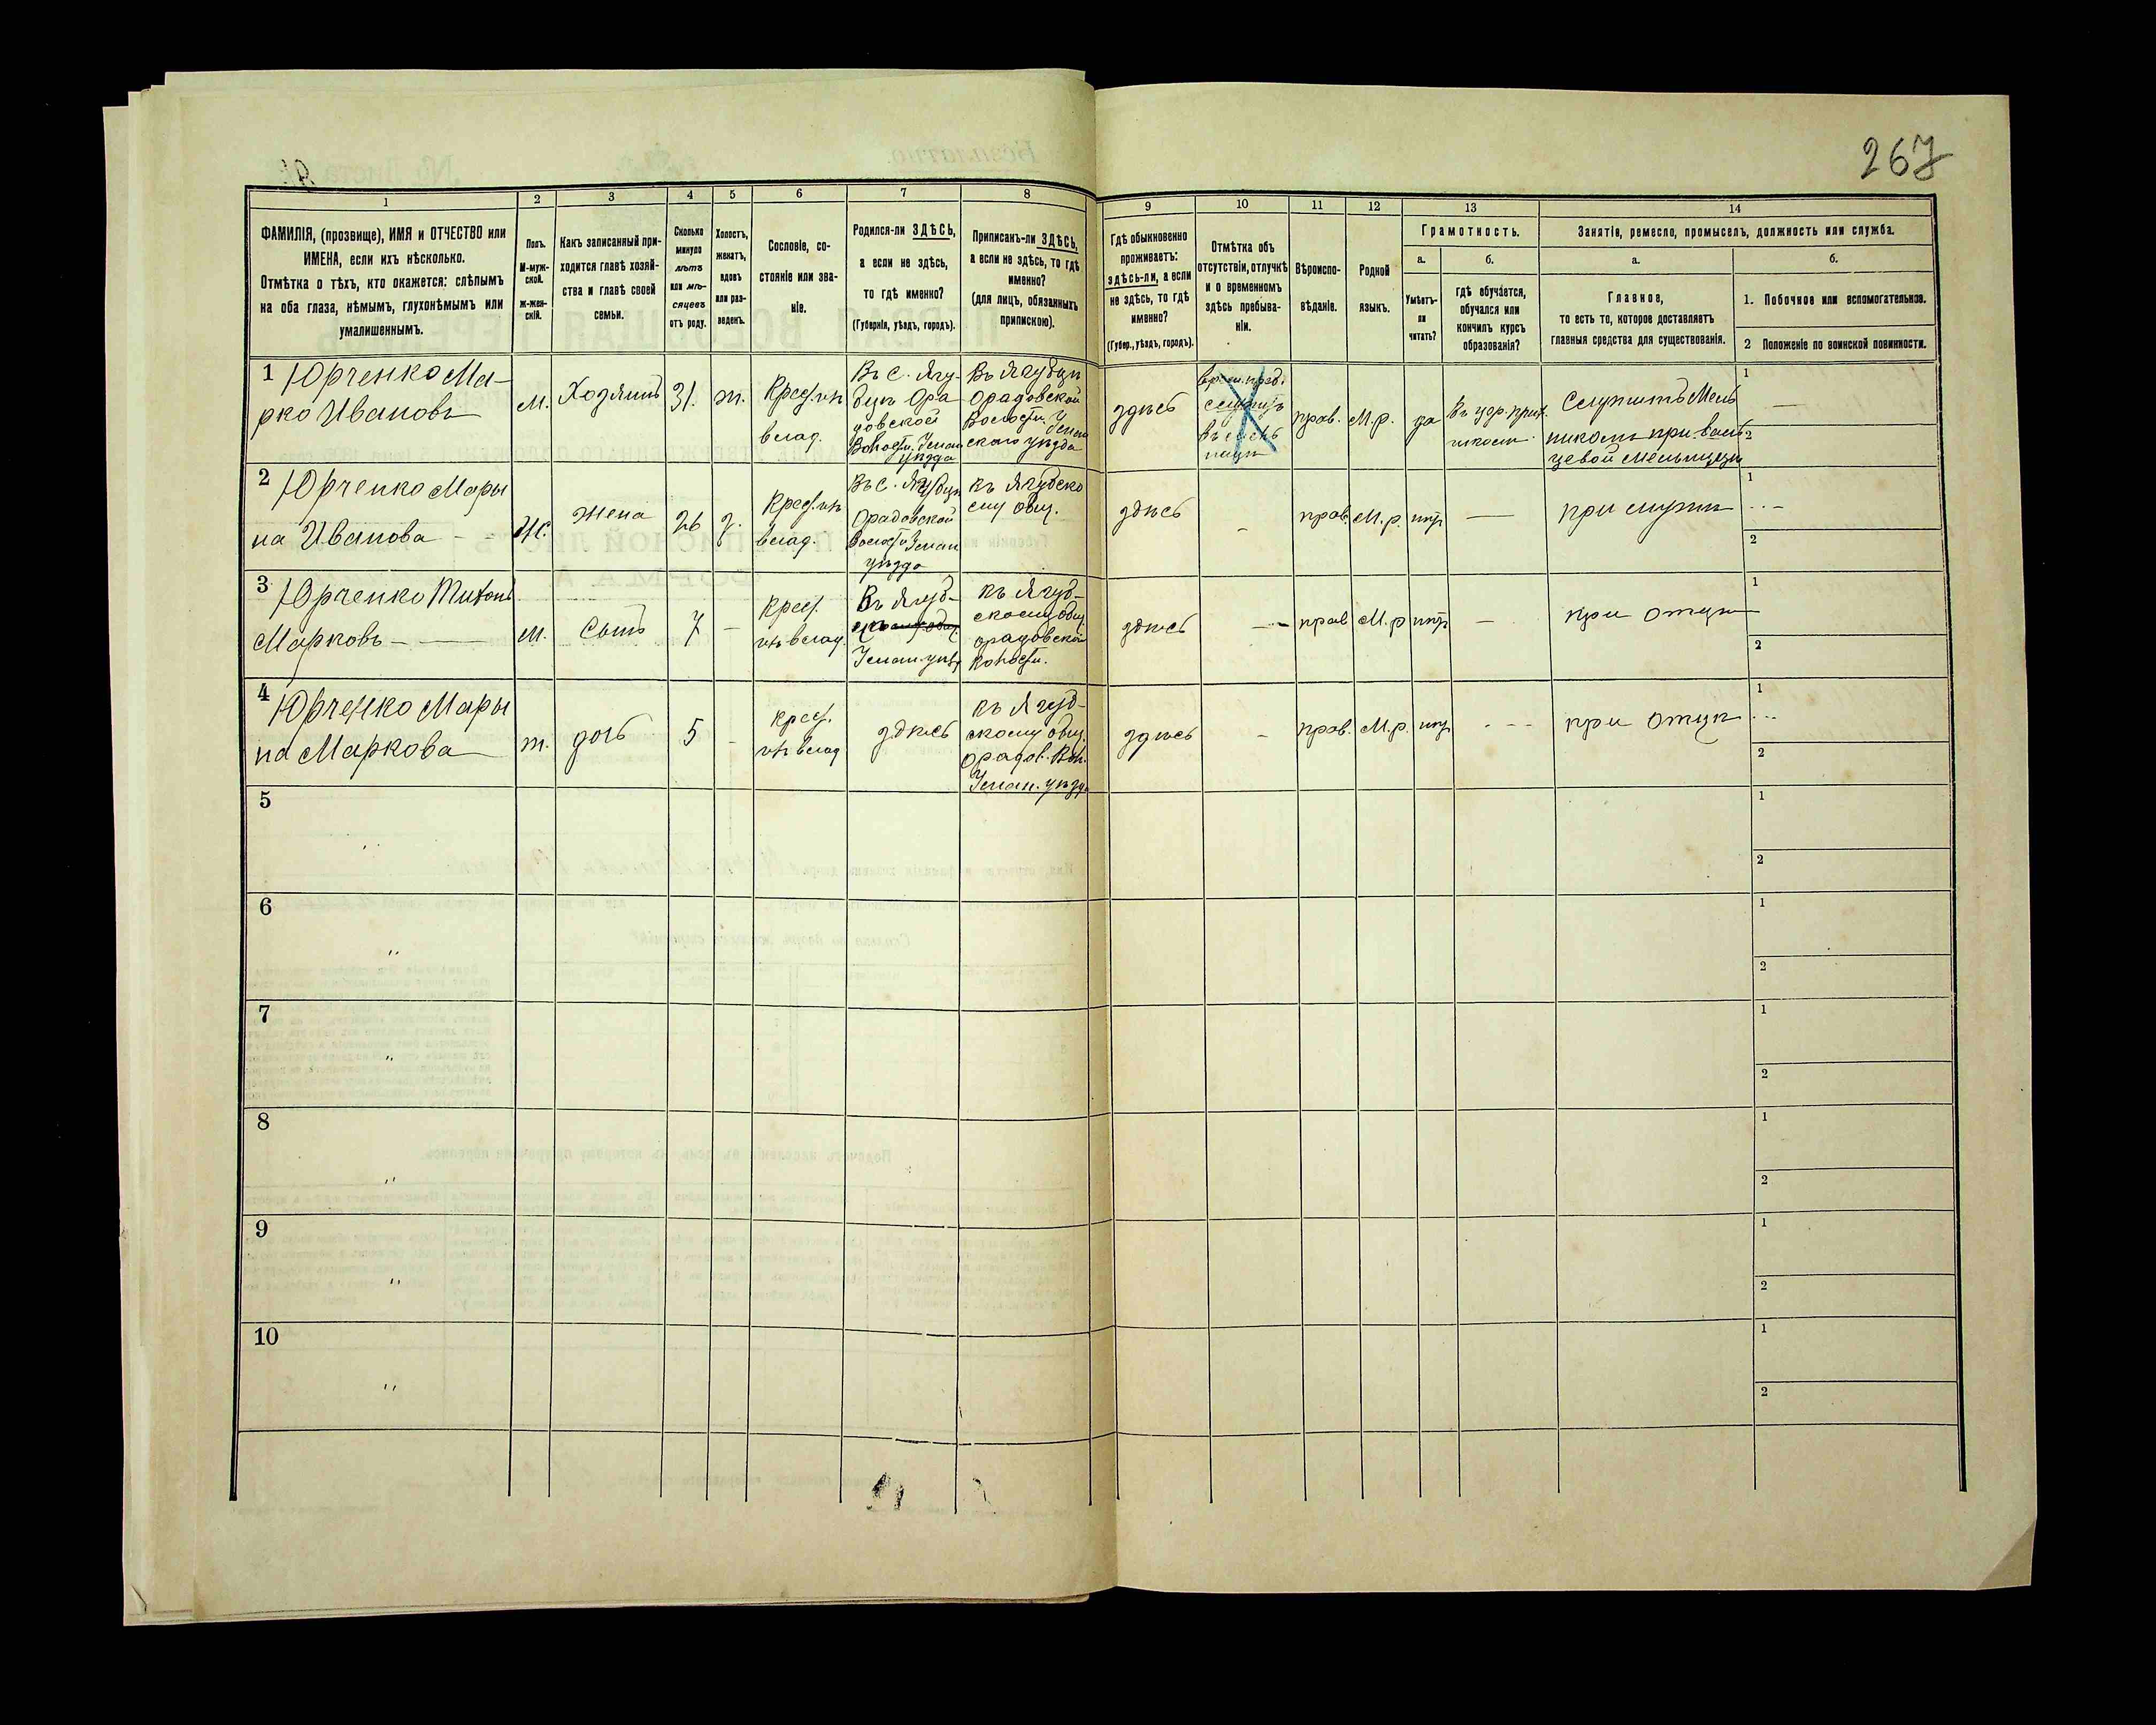 267
1
2
3
4
5
6
7
8
9
10
11
12
13
14
ФАМИЛІЯ, (прозвище), ИМЯ и ОТЧЕСТВО или
ИМЕНА, если ихъ нѣсколько.
Отмѣтка о тѣхъ, кто окажется: слѣпымъ
на оба глаза, нѣмымъ, глухонѣмымъ или
умалишеннымъ.
Полъ.
М-муж-
ской.
Ж-жен-
скій.
Какъ записанный при-
ходится главѣ хозяй-
ства и главѣ своей
семьи.
Сколько
минуло
лѣтъ
или мѣ-
сяцевъ
отъ роду.
Холостъ,
женатъ,
вдовъ
или раз-
веденъ.
Сословіе, со-
стояніе или зва-
ніе.
Родился-ли ЗДѢСЬ,
а если не здѣсь,
то гдѣ именно?
(Губернія, уѣздъ, городъ).
Приписанъ-ли ЗДѢСЬ,
а если не здѣсь, то гдѣ
именно?
(для лицъ, обязанныхъ
припискою).
Гдѣ обыкновенно
проживаетъ:
здѣсь-ли, а если
не здѣсь, то гдѣ
именно?
(Губер., уѣздъ, городъ).
Отмѣтка объ
отсутствіи, отлучкѣ
и о временномъ
здѣсь пребыва-
ніи.
Вѣроиспо-
вѣданіе.
Родной
языкъ.
Грамотность.
а.
Умѣетъ-
ли
читать?
б.
гдѣ обучается,
обучался или
кончилъ курсъ
образованія?
Занятіе, ремесло, промыселъ, должность или служба.
а.
Главное,
то есть то, которое доставляетъ
главныя средства для существованія.
б.
1. Побочное или вспомогательное.
2 Положеніе по воинской повинности.
1 Юрченко Ма-
рко Ивановъ
М.
Хозяинъ
31.
ж.
Крест. изъ
влад.
Въ с. Ягу-
бцѣ Ора
довской
Волости. Уман
уѣзда
Въ Ягубцѣ
Орадовской
Волости. Уман
скаго уѣзда
здѣсь
прав.
М.р.
да
въ цер. прих.
школѣ
Служитъ Мель
никомъ при валь
цевой мельницѣ
1 —
2
2 Юрченко Мары
на Иванова
Ж.
Жена
26
з.
Крест. изъ
влад.
Въ с. Ягубцѣ
Орадовской
Волости Уман
уѣзда
къ Ягубско
му общ.
здѣсь
-
прав.
М.р.
нѣтъ
—
при мужѣ
1
2
3 Юрченко Тихонъ
Марковъ
М.
Сынъ
7
—
крест.
изъ влад.
Въ Ягуб-
Уман. уѣз
къ Ягуб-
скому общ.
орадовской
волости.
здѣсь
прав
М.р
нѣтъ
—
при отцѣ
1
2
4 Юрченко Мары
на Маркова
ж.
дочь
5
-
крест.
изъ влад
здѣсь
къ Ягуб-
скому общ.
орадов. Вол.
Уман. уѣзда
здѣсь
-
прав.
М.р.
нѣтъ
при отцѣ
1
2
5
1
2
6
1
2
7
1
2
8
1
2
9
1
2
10
1
2